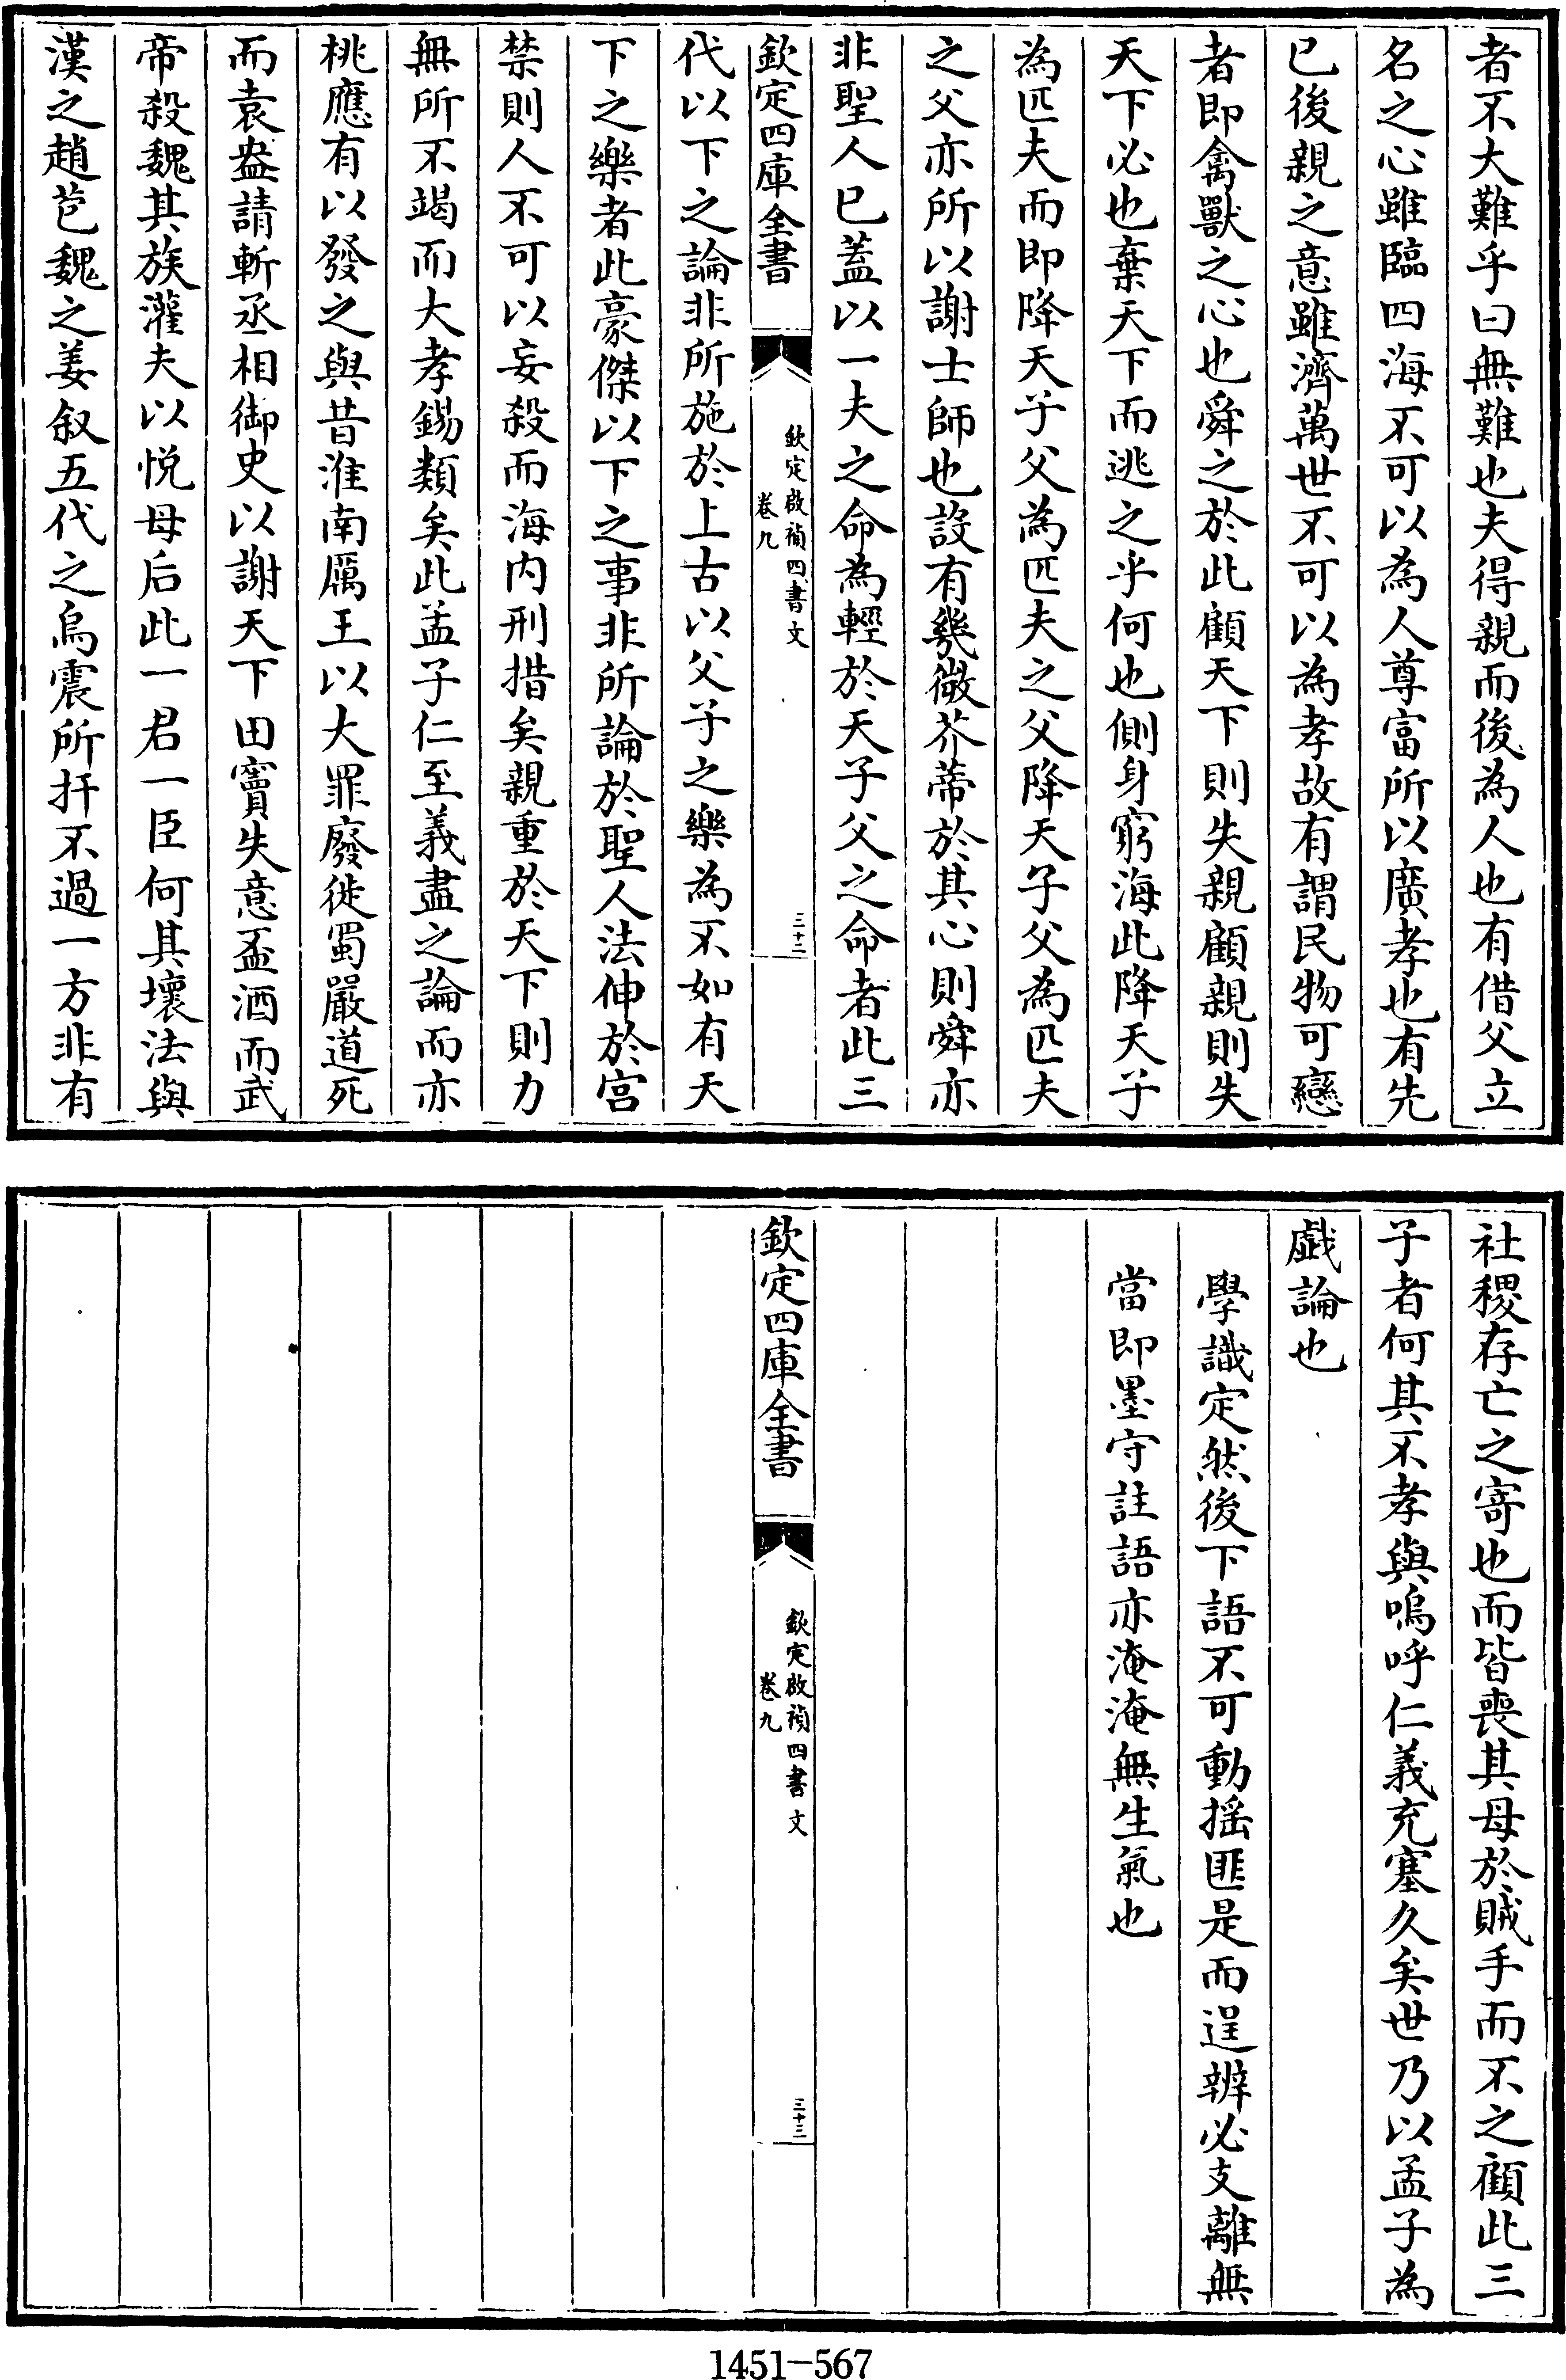 者不大難乎曰無難也夫得親而後為人也有借父立
名之心雖臨四海不可以為人尊富所以廣孝也有先
已後親之意雖濟萬世不可以為孝故有謂民物可戀
者即禽獸之心也舜之於此顧天下則失親顧親則失
天下必也棄天下而逃之乎何也側身窮海此降天子
為匹夫而即降天子父為匹夫之父降天子父為匹夫
之父亦所以謝士師也設有幾微芥蒂於其心則舜亦
非聖人已蓋以一夫之命為輕於天子父之命者此三
欽定四庫全書
欽定啟禎四書文
卷九
三十二
代以下之論非所施於上古以父子之樂為不如有天
下之樂者此豪傑以下之事非所論於聖人法伸於宮
禁則人不可以妄殺而海内刑措矣親重於天下則力
無所不竭而大孝錫類矣此孟子仁至義盡之論而亦
桃應有以發之與昔淮南厲王以大罪廢徙蜀嚴道死
而袁盎請斬丞相御史以謝天下田竇失意盃酒而武
帝殺魏其族灌夫以悅母后此一君一臣何其壞法與
漢之趙苞魏之姜叙五代之烏震所扞不過一方非有
社稷存亡之寄也而皆喪其母於賊手而不之顧此三
子者何其不孝與嗚呼仁義充塞久矣世乃以孟子為
戯論也
學識定然後下語不可動搖匪是而逞辨必支離無
當即墨守註語亦淹淹無生氣也
欽定四庫全書
欽定啟禎四書文
卷九
三十三
1451-567